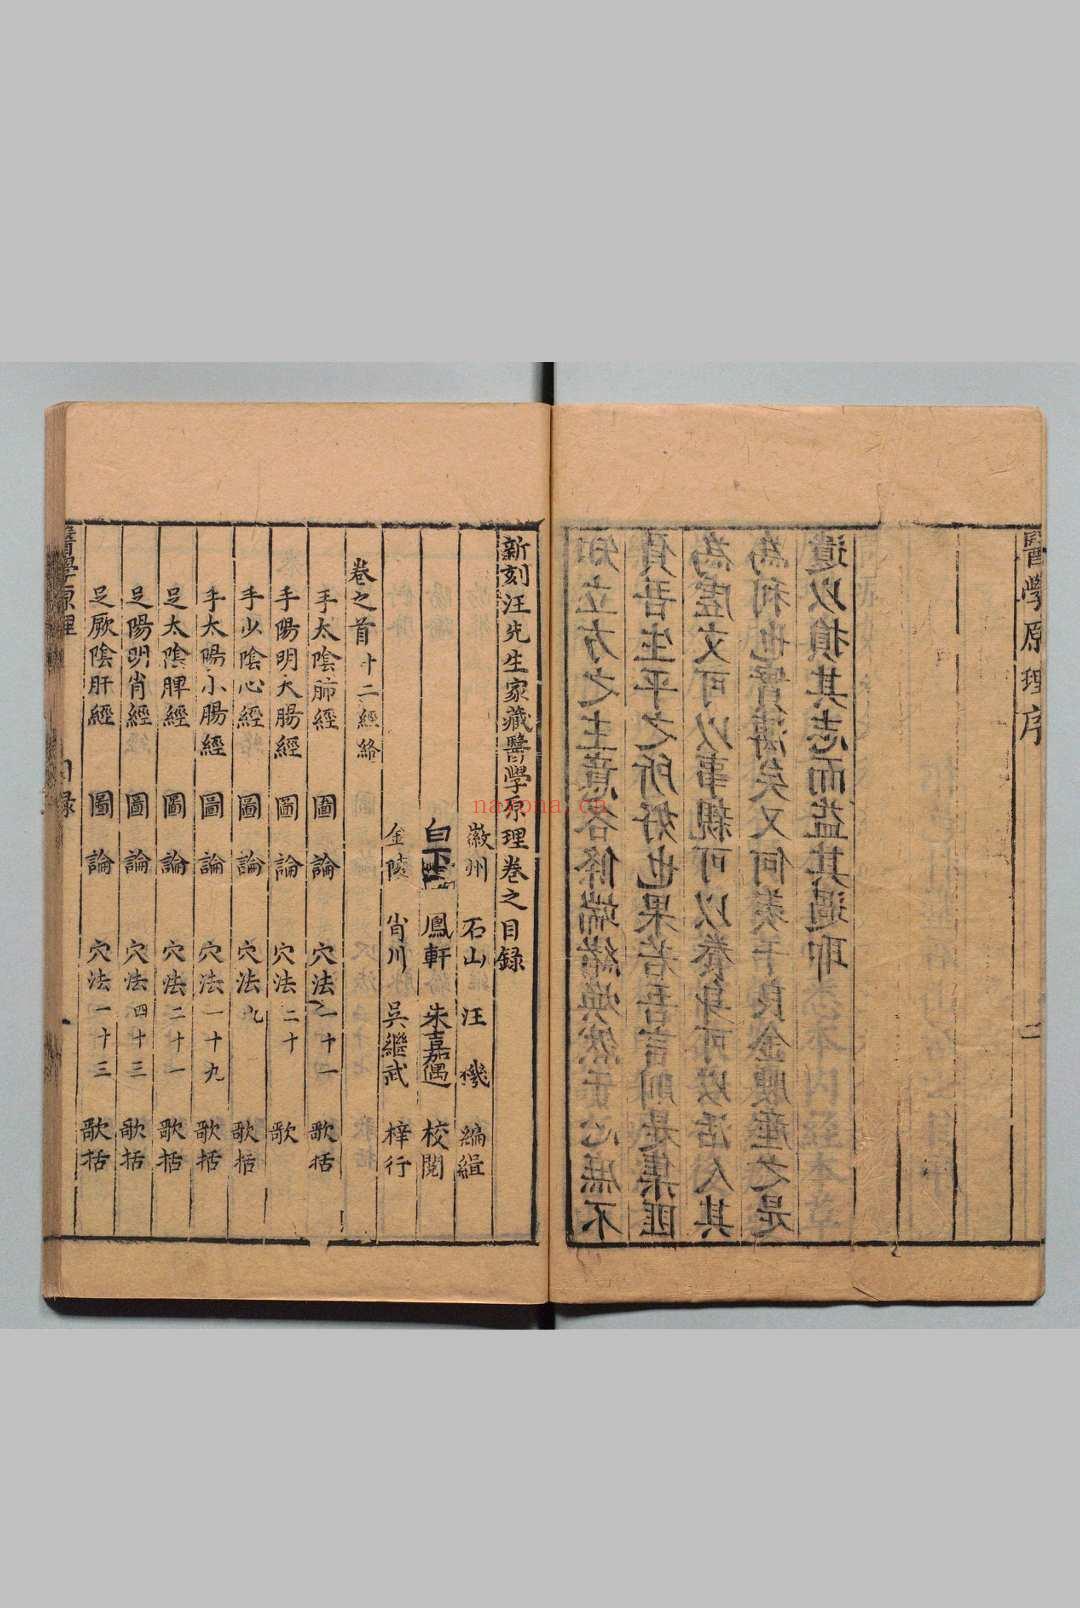 醫學原理序 二
知立方之主意各條端緒煥然于心庶不
負吾生平之所好也果若吾言則是集匪
為虛文可以事親可以養身可以活人其
為利也實溥矣又何羨于良金腴產之是
遺以損其志而益其過耶
新刻汪先生家藏醫學原理卷之目録
徽州 石山 汪機 編緝
白下 鳳軒 朱嘉遇 校閱
金陵 肖川 吳繼武 梓行
卷之首 十二經絡
手太陰肺經 圖 論 穴法一十一 歌括
手陽明大腸經 圖 論 穴法二十 歌
手少陰心經 圖 論 穴法九 歌括
手太陽小腸經 圖 論 穴法一十九 歌括
足太陰脾經 圖 論 穴法二十一 歌括
足陽明胃經 圖 論 穴法四十三 歌括
足厥陰肝經 圖 論 穴法一十三 歌括
醫學原理 目録